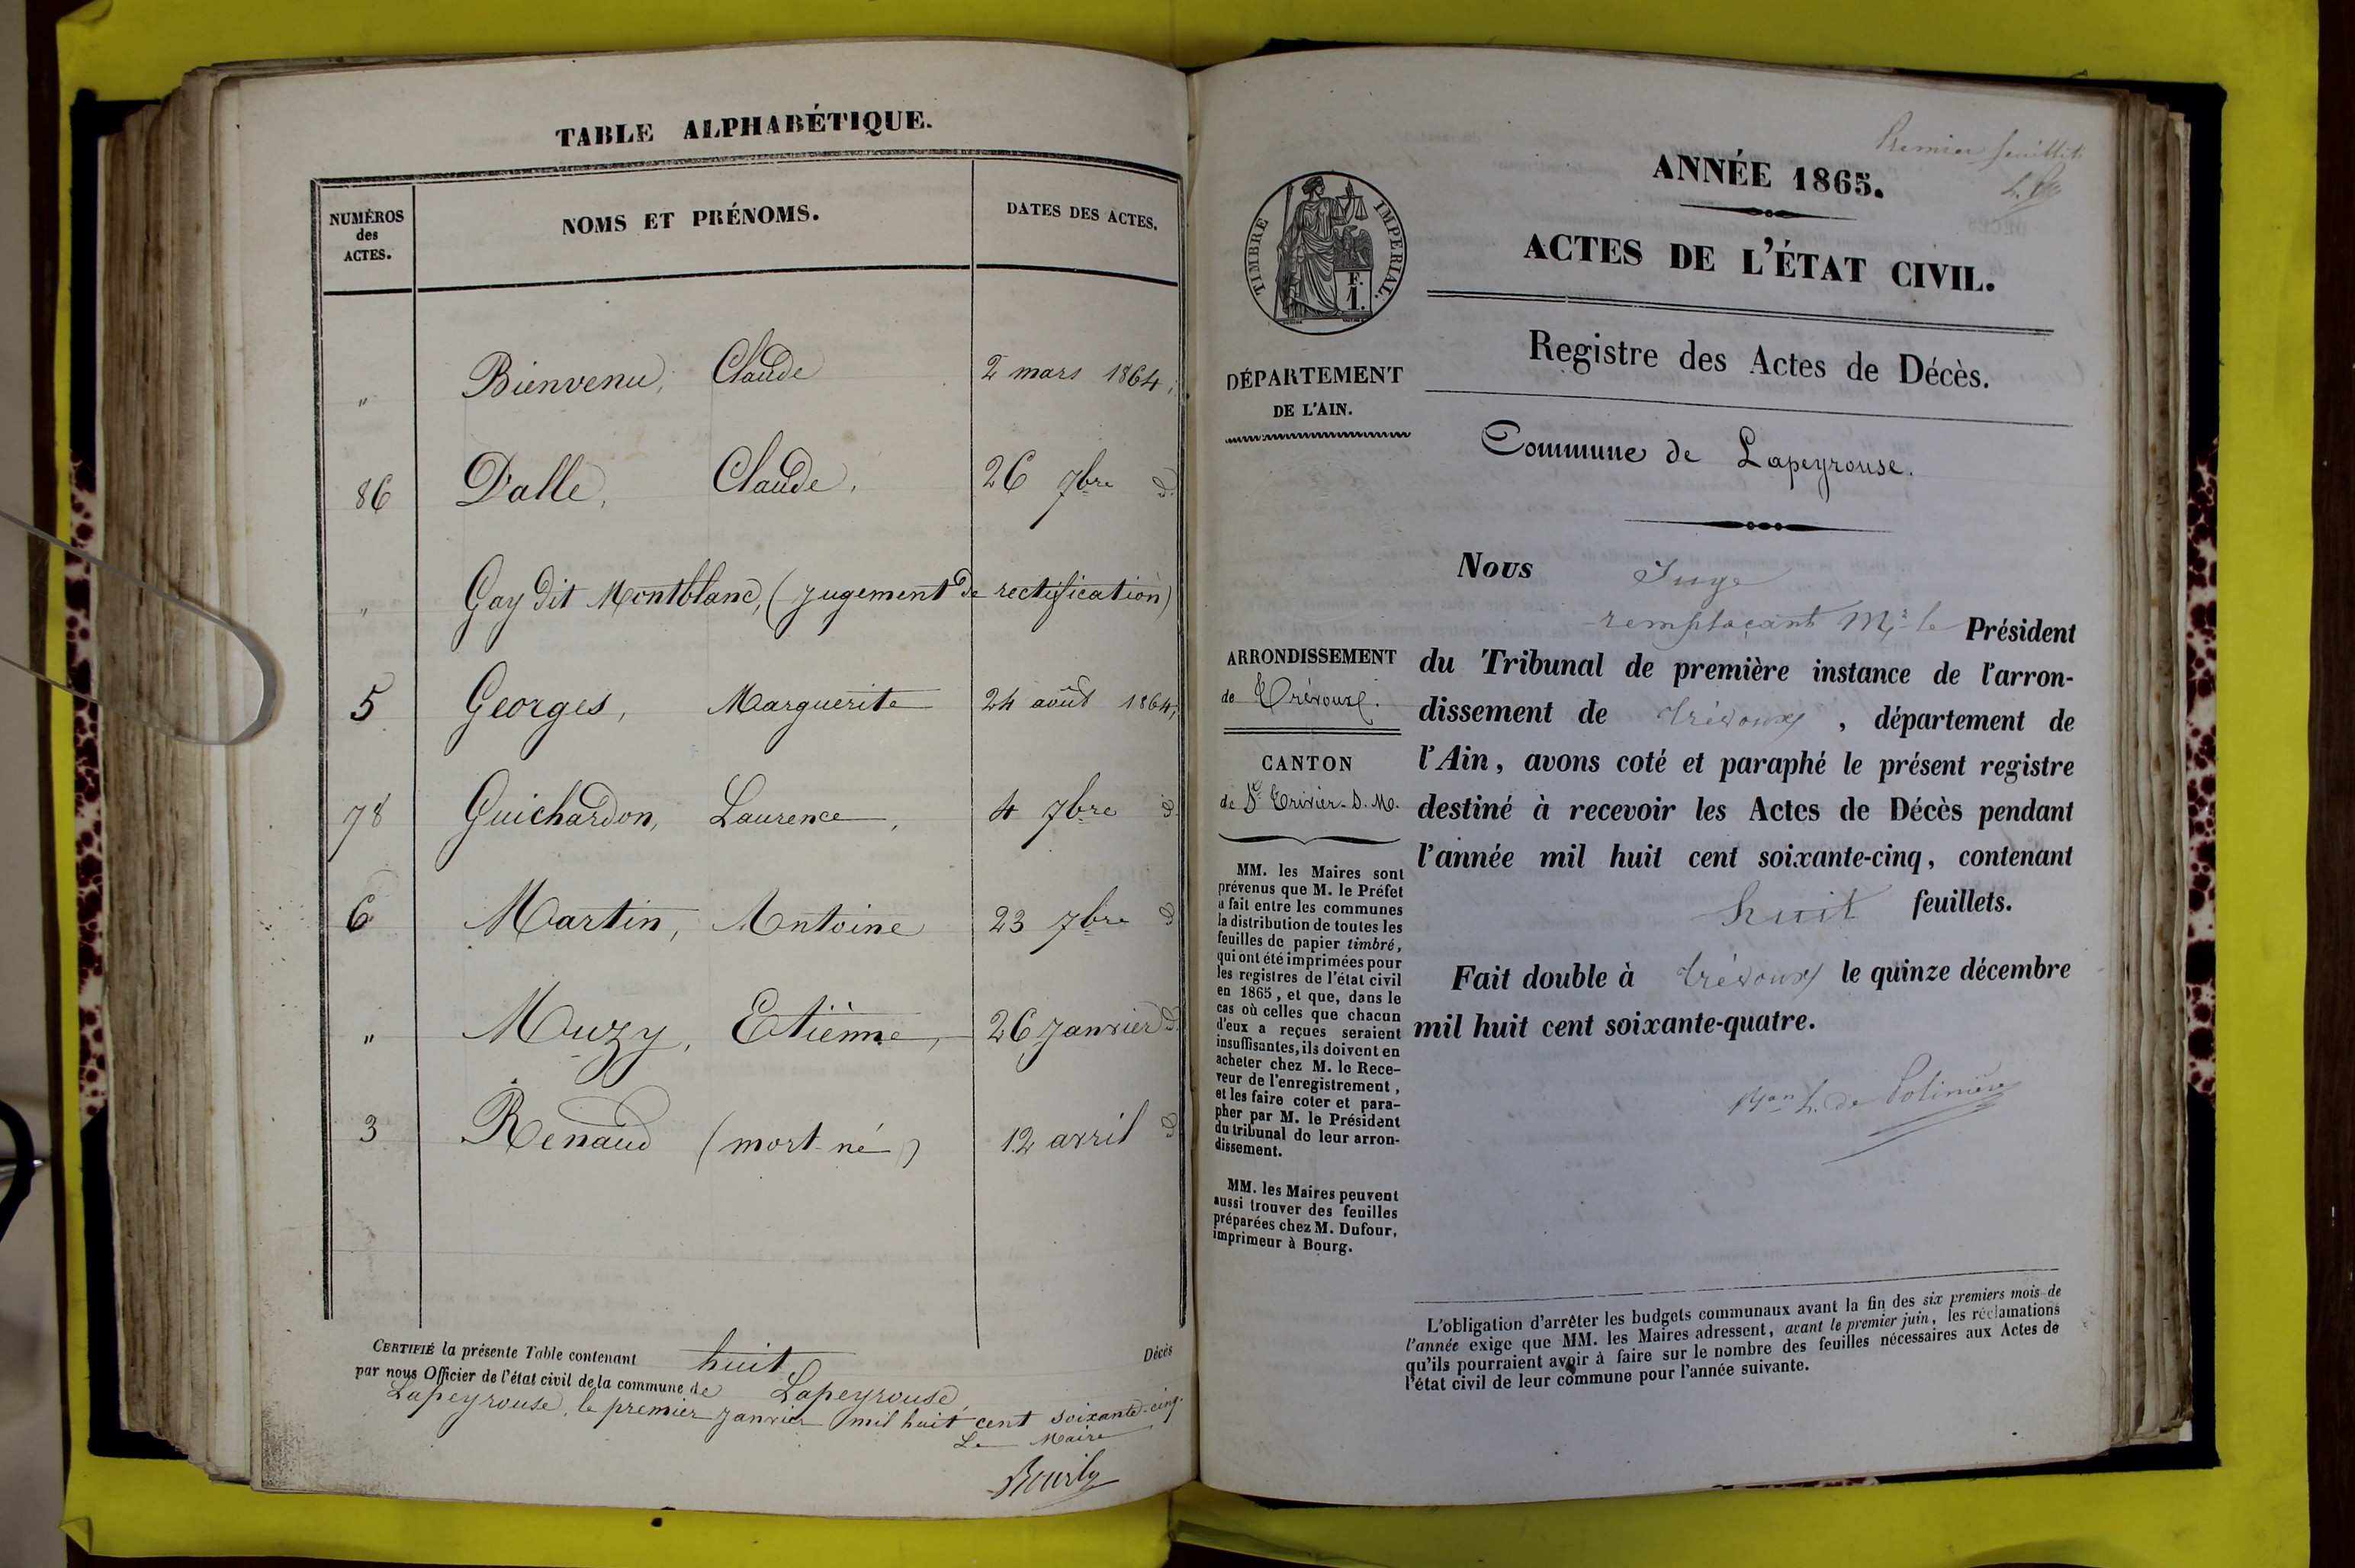 TABLE ALPHABÉTIQUE.
NUMÉROS
des
ACTES.
NOMS ET PRÉNOMS.
DATES DES ACTES.
" Bienvenu, Claude 2 mars 1864,
86 Dalle, Claude, 26 7bre d.
" Gay dit Montblanc, (jugement de rectification)
5 Georges, Marguerite 24 août 1864,
78 Guichardon, Laurence, 4 7bre d.
6 Martin, Antoine 23 7bre d.
" Muzy, Etienne, 26 janvier d.
3 Renaud (mort-né) 12 avril d.
CERTIFIÉ la présente Table contenant huit
Décès
par nous Officier de l'état civil de la commune de Lapeyrouse,
Lapeyrouse, le premier janvier mil huit cent soixante-cinq.
Le Maire
Premier feuillet
ANNÉE 1865.
TIMBRE IMPERIAL.
ACTES DE L'ÉTAT CIVIL.
Registre des Actes de Décès.
DÉPARTEMENT
DE L'AIN.
Commune de Lapeyrouse.
Nous Juge
remplaçant Mr le Président
du Tribunal de première instance de l'arron-
dissement de Trévoux, département de
l'Ain, avons coté et paraphé le présent registre
destiné à recevoir les Actes de Décès pendant
l'année mil huit cent soixante-cinq, contenant
huit feuillets.
Fait double à Trévoux le quinze décembre
mil huit cent soixante-quatre.
ARRONDISSEMENT
de Trévoux.
CANTON
de St Trivier-s.M.
MM. les Maires sont
prévenus que M. le Préfet
a fait entre les communes
la distribution de toutes les
feuilles de papier timbré,
qui ont été imprimées pour
les registres de l'état civil
en 1865, et que, dans le
cas où celles que chacun
d'eux a reçues seraient
insuffisantes, ils doivent en
acheter chez M. le Rece-
veur de l'enregistrement,
et les faire coter et para-
pher par M. le Président
du tribunal de leur arron-
dissement.
MM. les Maires peuvent
aussi trouver des feuilles
préparées chez M. Dufour,
imprimeur à Bourg.
L'obligation d'arrêter les budgets communaux avant la fin des six premiers mois de
l'année exige que MM. les Maires adressent, avant le premier juin, les réclamations
qu'ils pourraient avoir à faire sur le nombre des feuilles nécessaires aux Actes de
l'état civil de leur commune pour l'année suivante.